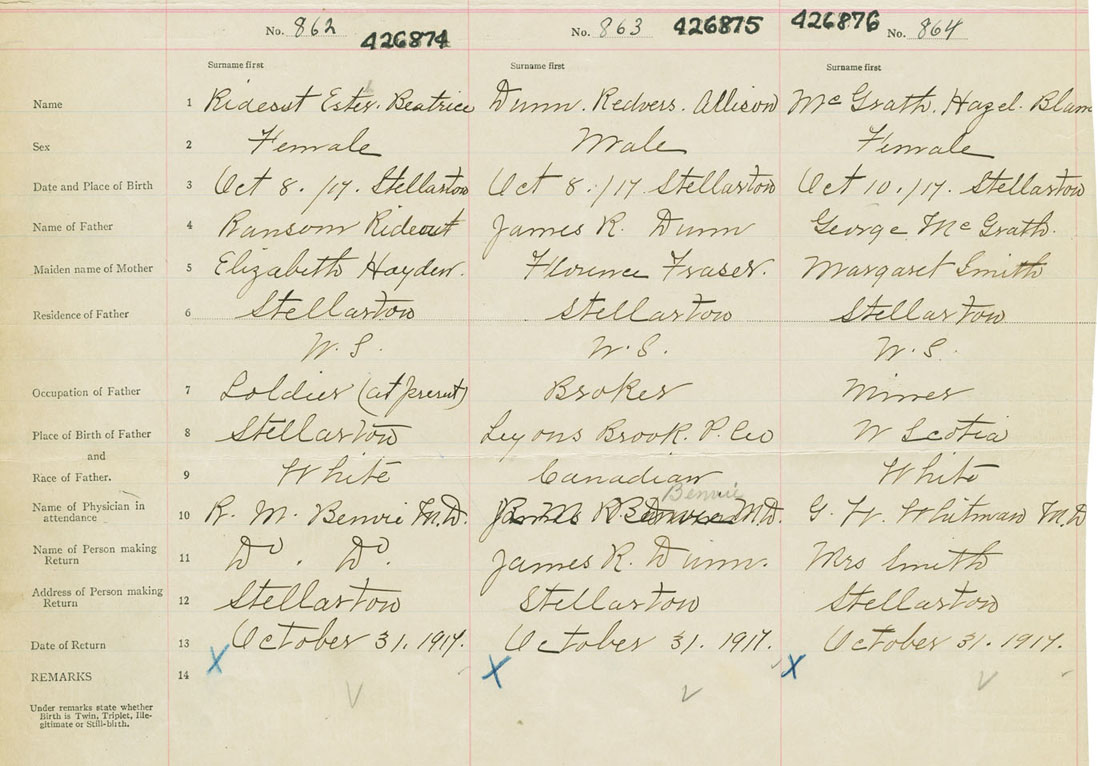 No. 862 426874 No. 863 426875 426876 No. 864
Surname first Surname first Surname first
Name 1 Rideout Ester. Beatrice Dunn. Redvers. Allison Mc Grath. Hazel. Blan
Sex 2 Female Male Female
Date and Place of Birth 3 Oct 8. /17. Stellarton Oct 8. /17 Stellarton Oct 10. /17. Stellarton
Name of Father 4 Ransom Rideout James R. Dunn George Mc Grath.
Maiden name of Mother 5 Elizabeth Hayden. Florence Fraser. Margaret Smith
Residence of Father 6 Stellarton Stellarton Stellarton
N. S. N. S. N. S.
Occupation of Father 7 Soldier (at present) Broker Miner
Place of Birth of Father 8 Stellarton Lyons Brook. P. Co N Scotia
and
Race of Father. 9 White Canadian White
Benvie
Name of Physician in
attendance 10 R. M. Benvie M.D. M.D. G. W. Whitman M.D
Name of Person making
Return 11 Do . Do. James R. Dunn. Mrs Smith
Address of Person making
Return 12 Stellarton Stellarton Stellarton
Date of Return 13 October 31. 1917. October 31. 1917. October 31. 1917.
REMARKS 14
Under remarks state whether
Birth is Twin, Triplet, Ille-
gitimate or Still-birth.